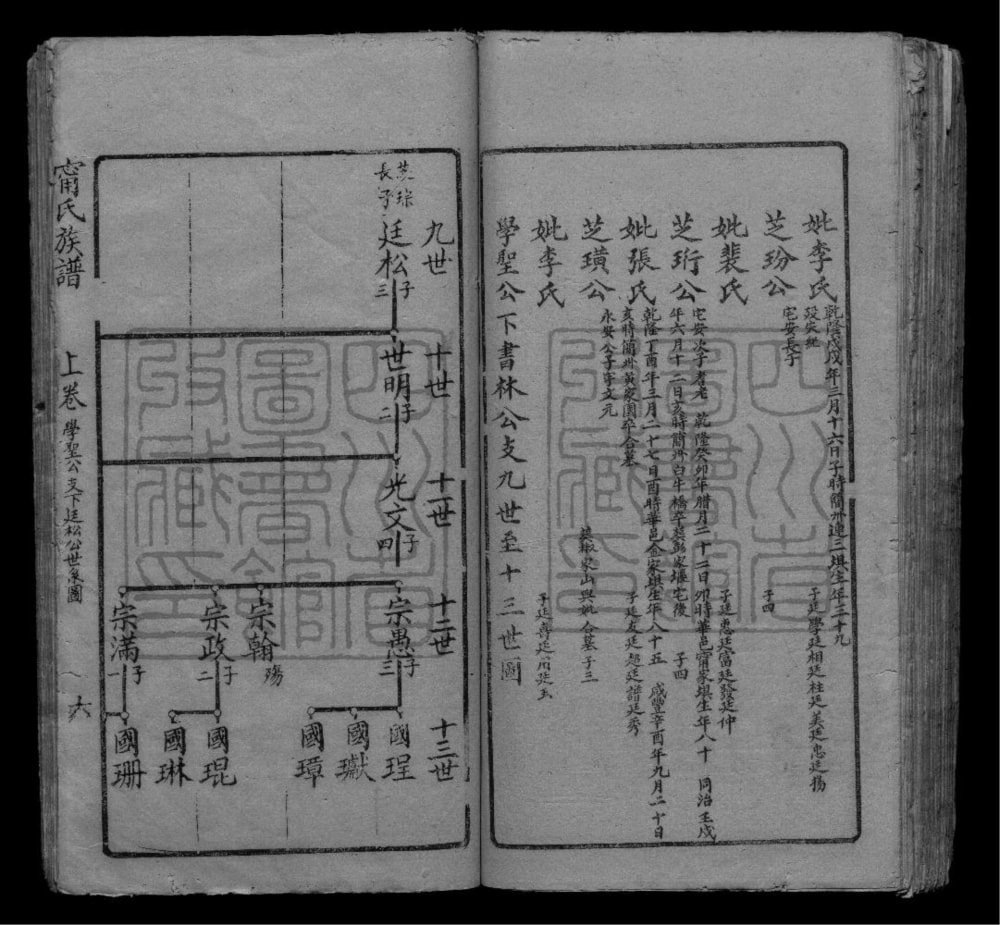 妣李氏
乾隆戊戌年三月十六日子時簡州連三堰生年三十九
歿失紀
子廷學廷相廷柱廷美廷忠廷揚
芝玢公
宅安長子
子四
妣裴氏
子廷惠廷富廷發廷仲
芝珩公
宅安次子耆老 乾隆癸卯年腊月二十二日卯時華邑甯家堰生年八十 同治壬戌
年六月十二日亥時簡州白牛橋卒葬彭家堰宅後 子四
妣張氏
乾隆丁酉年三月二十七日酉時華邑金家堰生年八十五 咸豐辛酉年九月二十日
亥時簡州黃家園卒合墓
子廷友廷超廷譜廷秀
芝璜公
永安公子字文元
山與妣合墓子三
妣李氏
子廷壽廷川廷玉
學聖公下書林公支九世至十三世圖
九世
芝琮
長子
廷松
子三
十世
世明
子二
十一世
光文
子四
十二世
宗愚
子三
宗翰
殤
宗政
子二
宗滿
子一
十三世
國珵
國瓛
國璋
國琨
國琳
國珊
甯氏族譜
上卷
學聖公支下廷松公世系圖
六
四川省
圖書館
收藏印